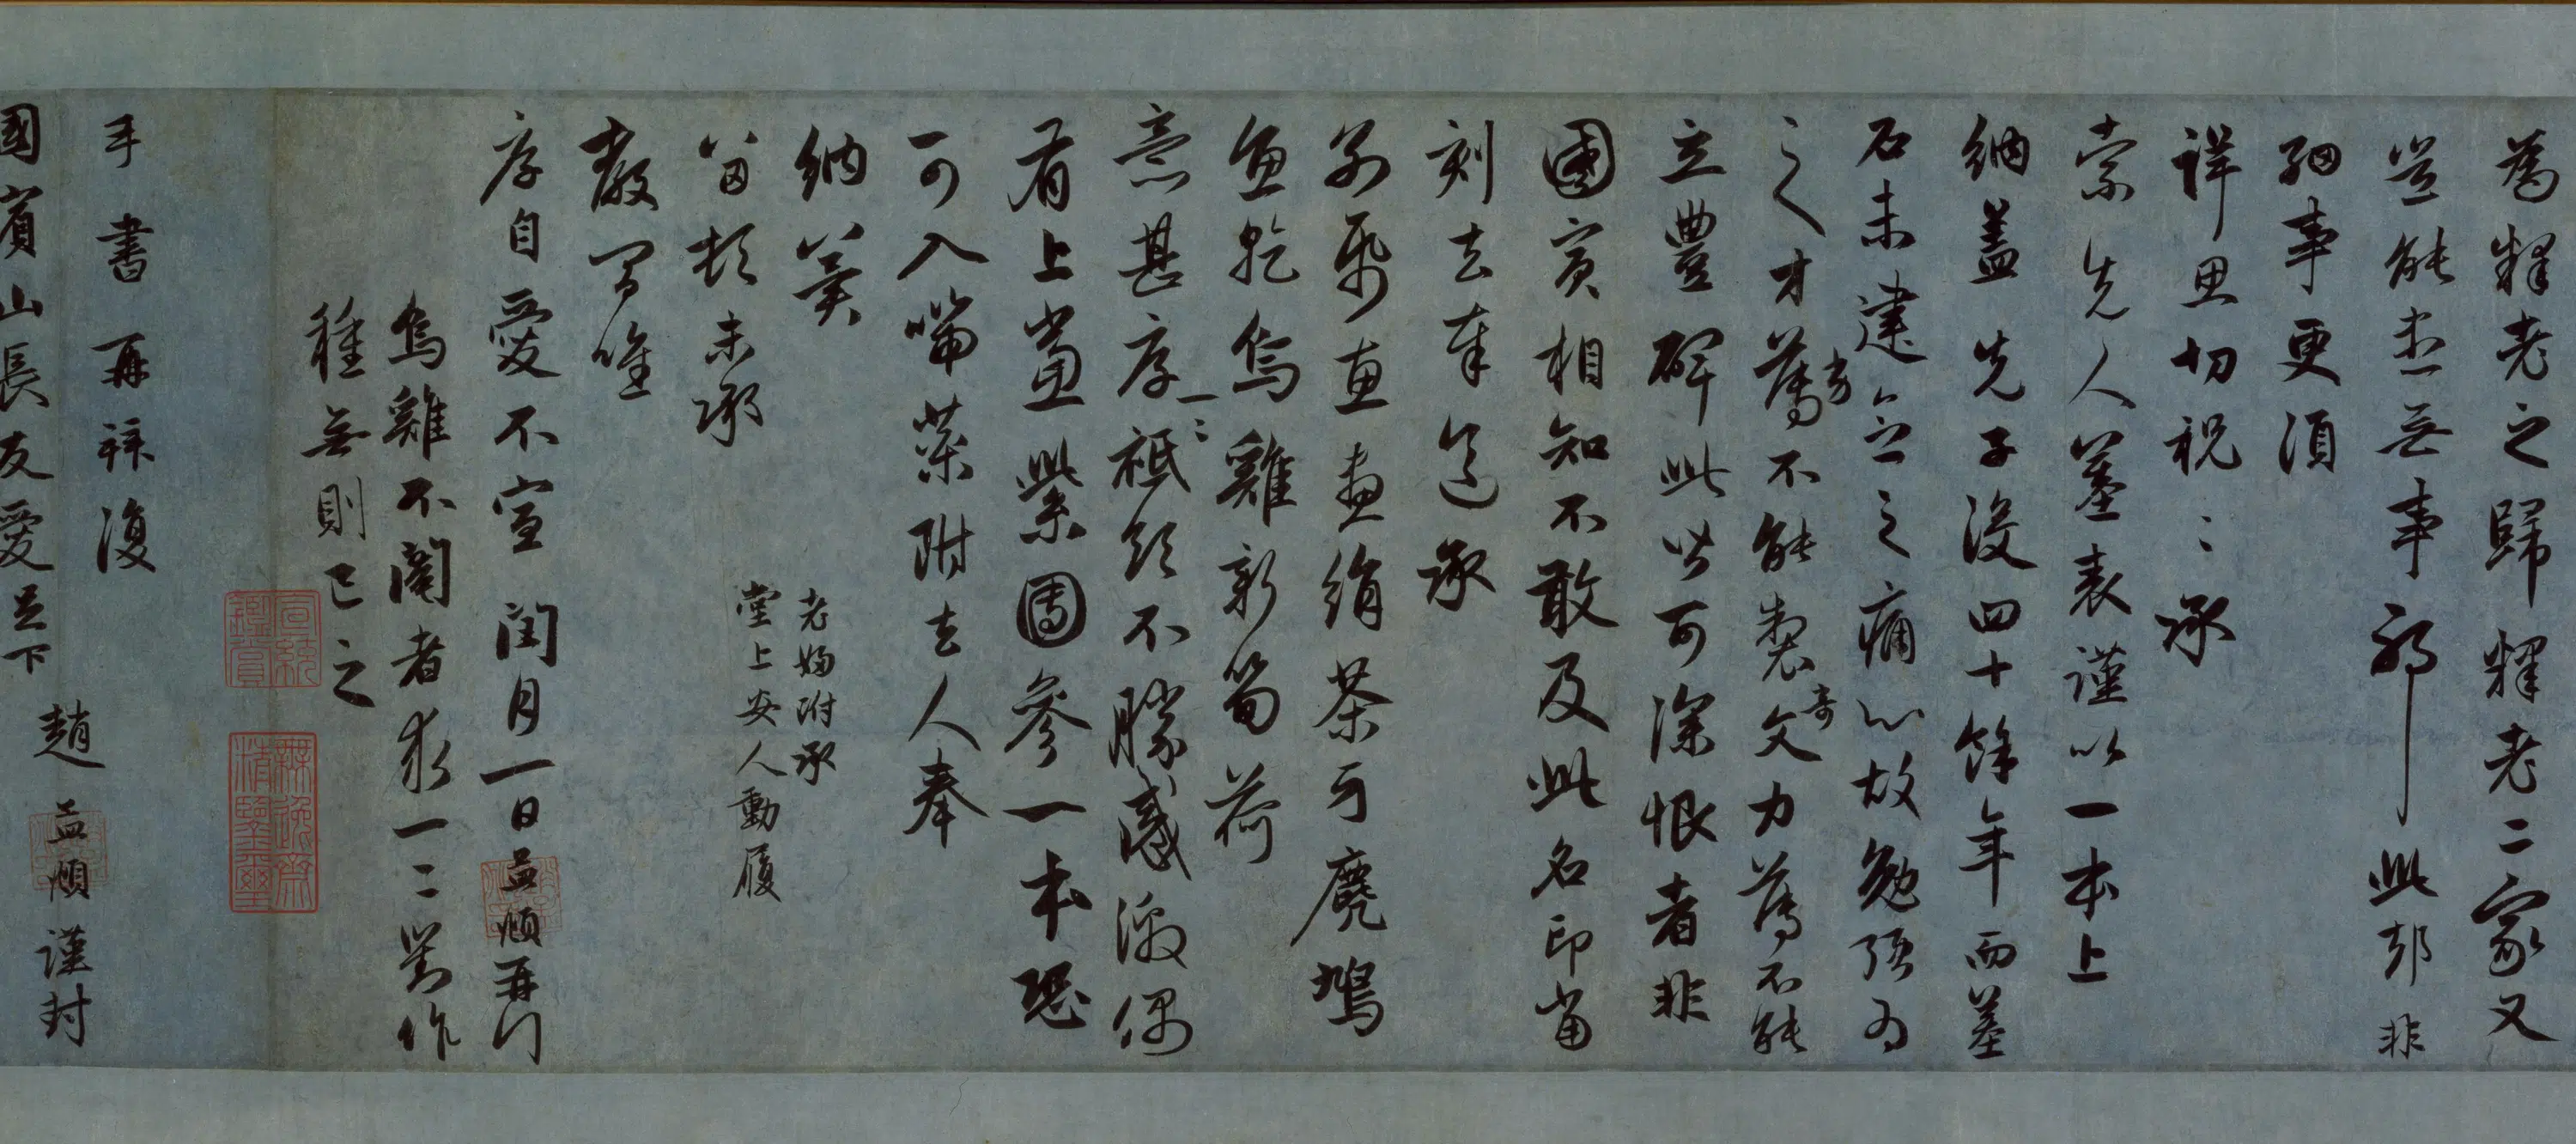 為釋老之歸釋老二家又
豈能盡無事耶此却非
細事更須
詳思切祝〻承
索先人墓表謹以一本上
納蓋先子沒四十餘年而墓
石未建念之痛心故勉強為
之〻才薄不能製文力薄不能
立豐碑此皆可深恨者非
國賓相知不敢及此名印當
刻去奉送承
惠畫絹茶牙麂
魚乾烏雞新筍荷
意甚厚一〻祗領不勝感激偶
有上黨紫團參一本恐
可入喘藥附去人奉
納冀
留頓未承
老婦附承
堂上安人動履
教間唯
厚自愛不宣閏月一日孟頫再拜
烏雞不閹者求一二對作
種無則已之
手書再拜復
國賓山長友愛足下
趙孟頫謹封